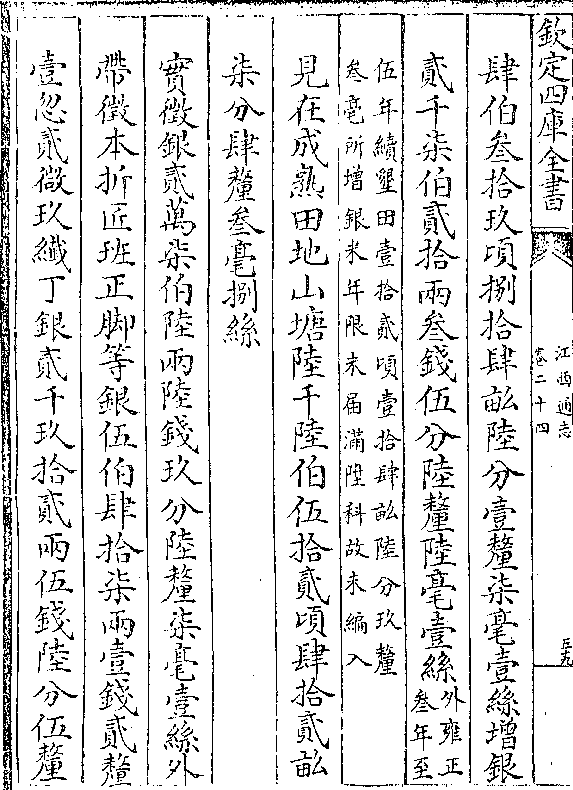 欽定四庫全書
江西通志
卷二十四
肆伯叁拾玖頃捌拾肆畆陸分壹釐柒毫壹絲增銀
貳千柒伯貳拾兩叁錢伍分陸釐陸毫壹絲外雍正
叁年至
伍年續墾田壹拾貳頃壹拾肆畆陸分玖釐
叁毫所增銀米年限未届滿陞科故未編入
見在成熟田地山塘陸千陸伯伍拾貳頃肆拾貳畆
柒分肆釐叁毫捌絲
實徵銀貳萬柒伯陸兩陸錢玖分陸釐柒毫壹絲外
帶徵本折匠班正脚等銀伍伯肆拾柒兩壹錢貳釐
壹忽貳微玖纖丁銀貳千玖拾貳兩伍錢陸分伍釐